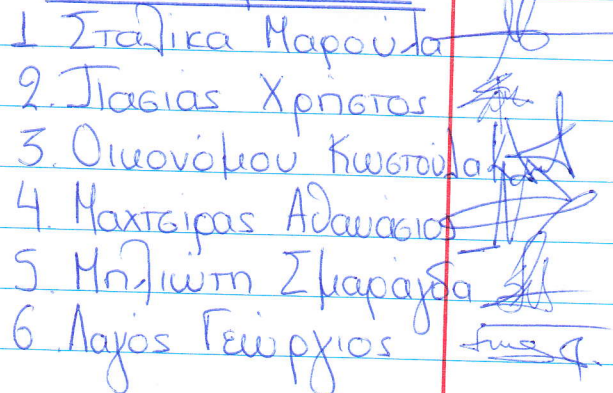 1 Σταλίκα Μαρούλα
2. Πασιάς Χρήστος
3. Οικονόμου Κωστούλα
4. Μαχτσιρας Αθανάσιος
5. Μηλιώτη Σμαράγδα
6. Λαγός Γεώργιος